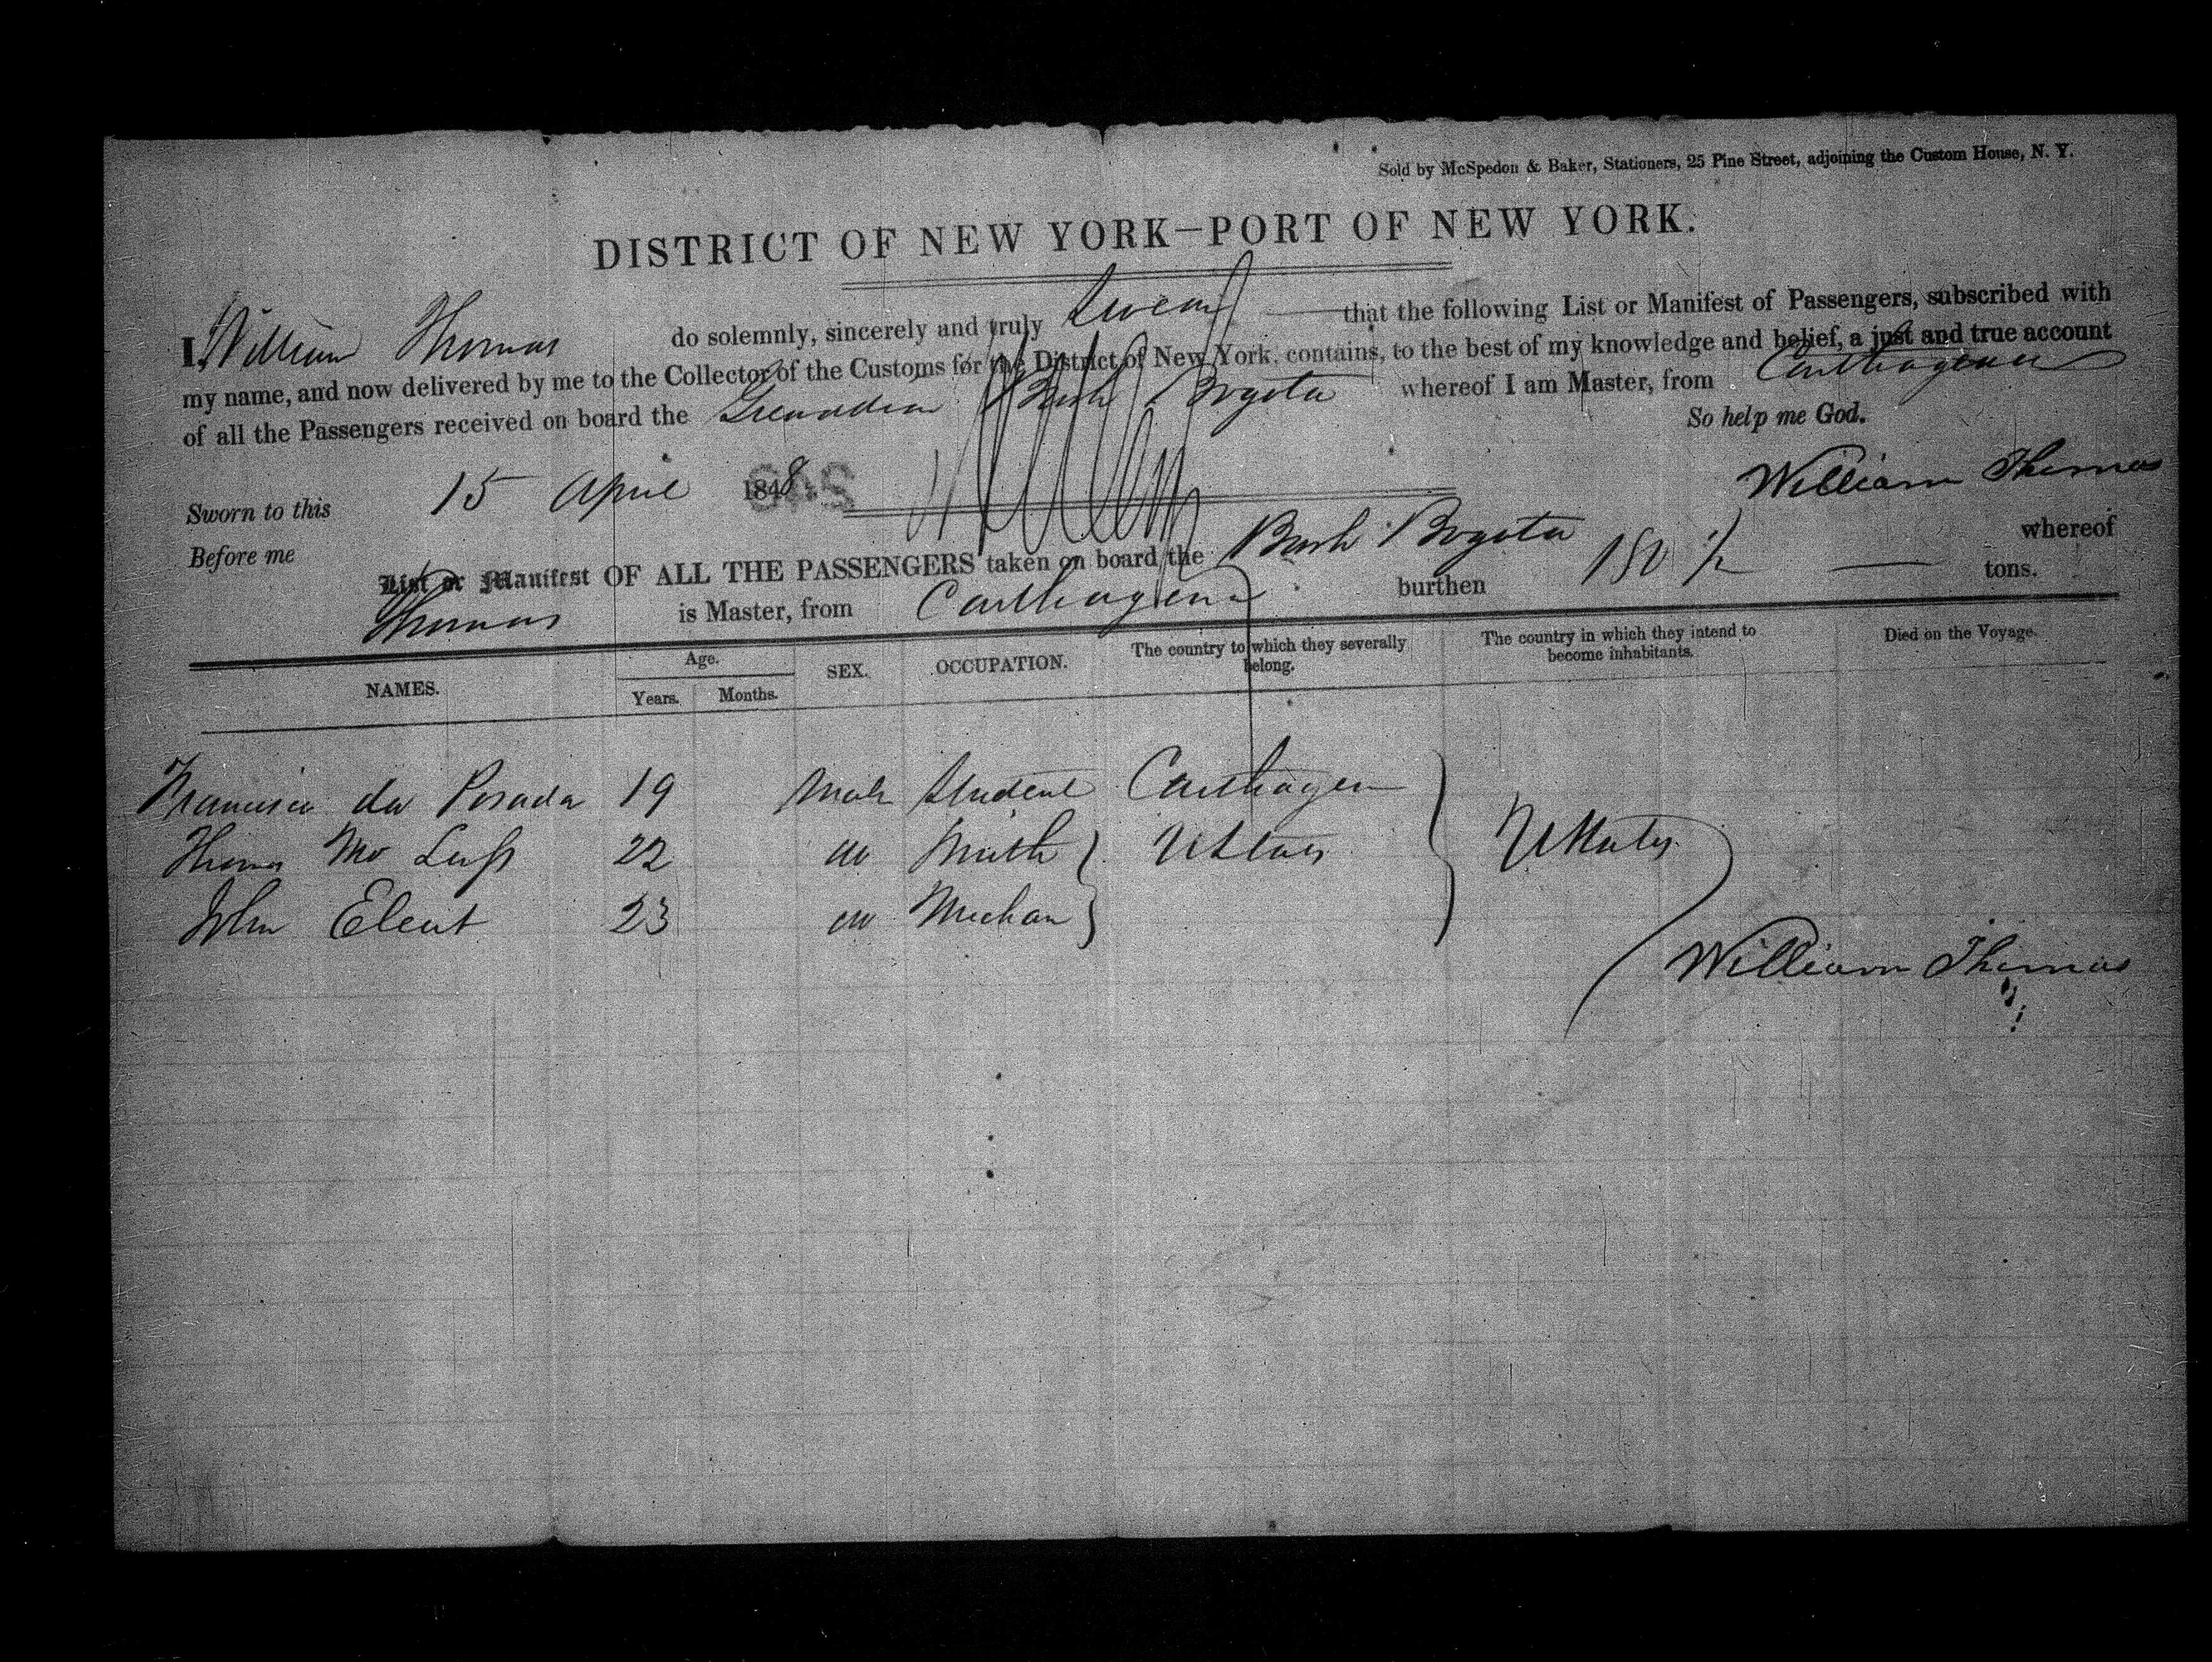 Sold by McSpedon & Baker, Stationers, 25 Pine Street, adjoining the Custom House, N. Y.
DISTRICT OF NEW YORK—PORT OF NEW YORK.
I, William Thomas do solemnly, sincerely and truly swear that the following List or Manifest of Passengers, subscribed with
my name, and now delivered by me to the Collector of the Customs for the District of New York, contains, to the best of my knowledge and belief, a just and true account
of all the Passengers received on board the Grenadian Bark Bogota whereof I am Master, from Carthagena
So help me God.
Sworn to this 15 April 1848
William Thomas
Before me
List or Manifest OF ALL THE PASSENGERS taken on board the Bark Bogota whereof
Thomas is Master, from Carthagena burthen 180 tons.
NAMES. Age. Years. Months. SEX. OCCUPATION. The country to which they severally belong. The country in which they intend to become inhabitants. Died on the Voyage.
Francisco da Posada 19 Male Student Carthagen
Thomas 22 do Smith UStates UStates
John 23 do Mechan
William Thomas